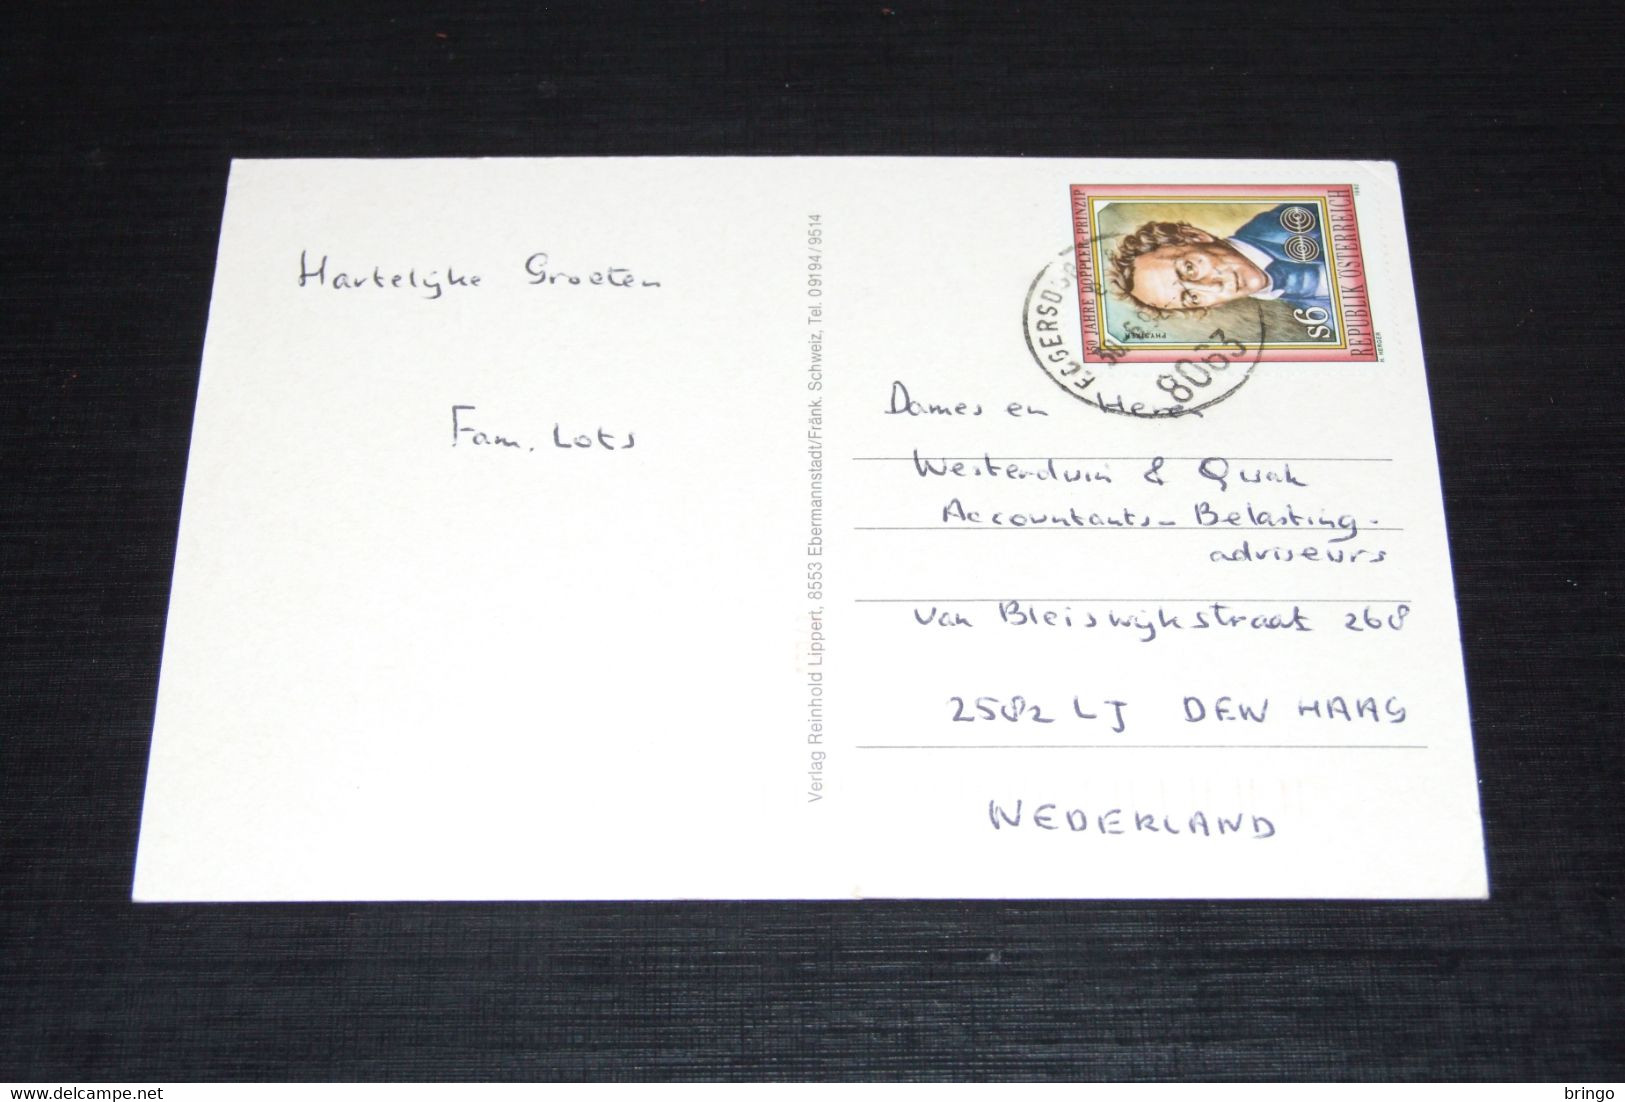 Hartelijke Groeten
Fam. Lots
Verlag Reinhold Lippert, 8553 Ebermannstadt/Fränk. Schweiz, Tel. 09194/9514
150 JAHRE DOPPLER-PRINZIP
PHYSIKER
S6
REPUBLIK ÖSTERREICH
H. HERGER
1992
8063
Dames en Heren
Westerduin & Quak
Accountants - Belasting-
adviseurs
van Bleiswijkstraat 268
2582 LJ DEN HAAG
NEDERLAND
bringo